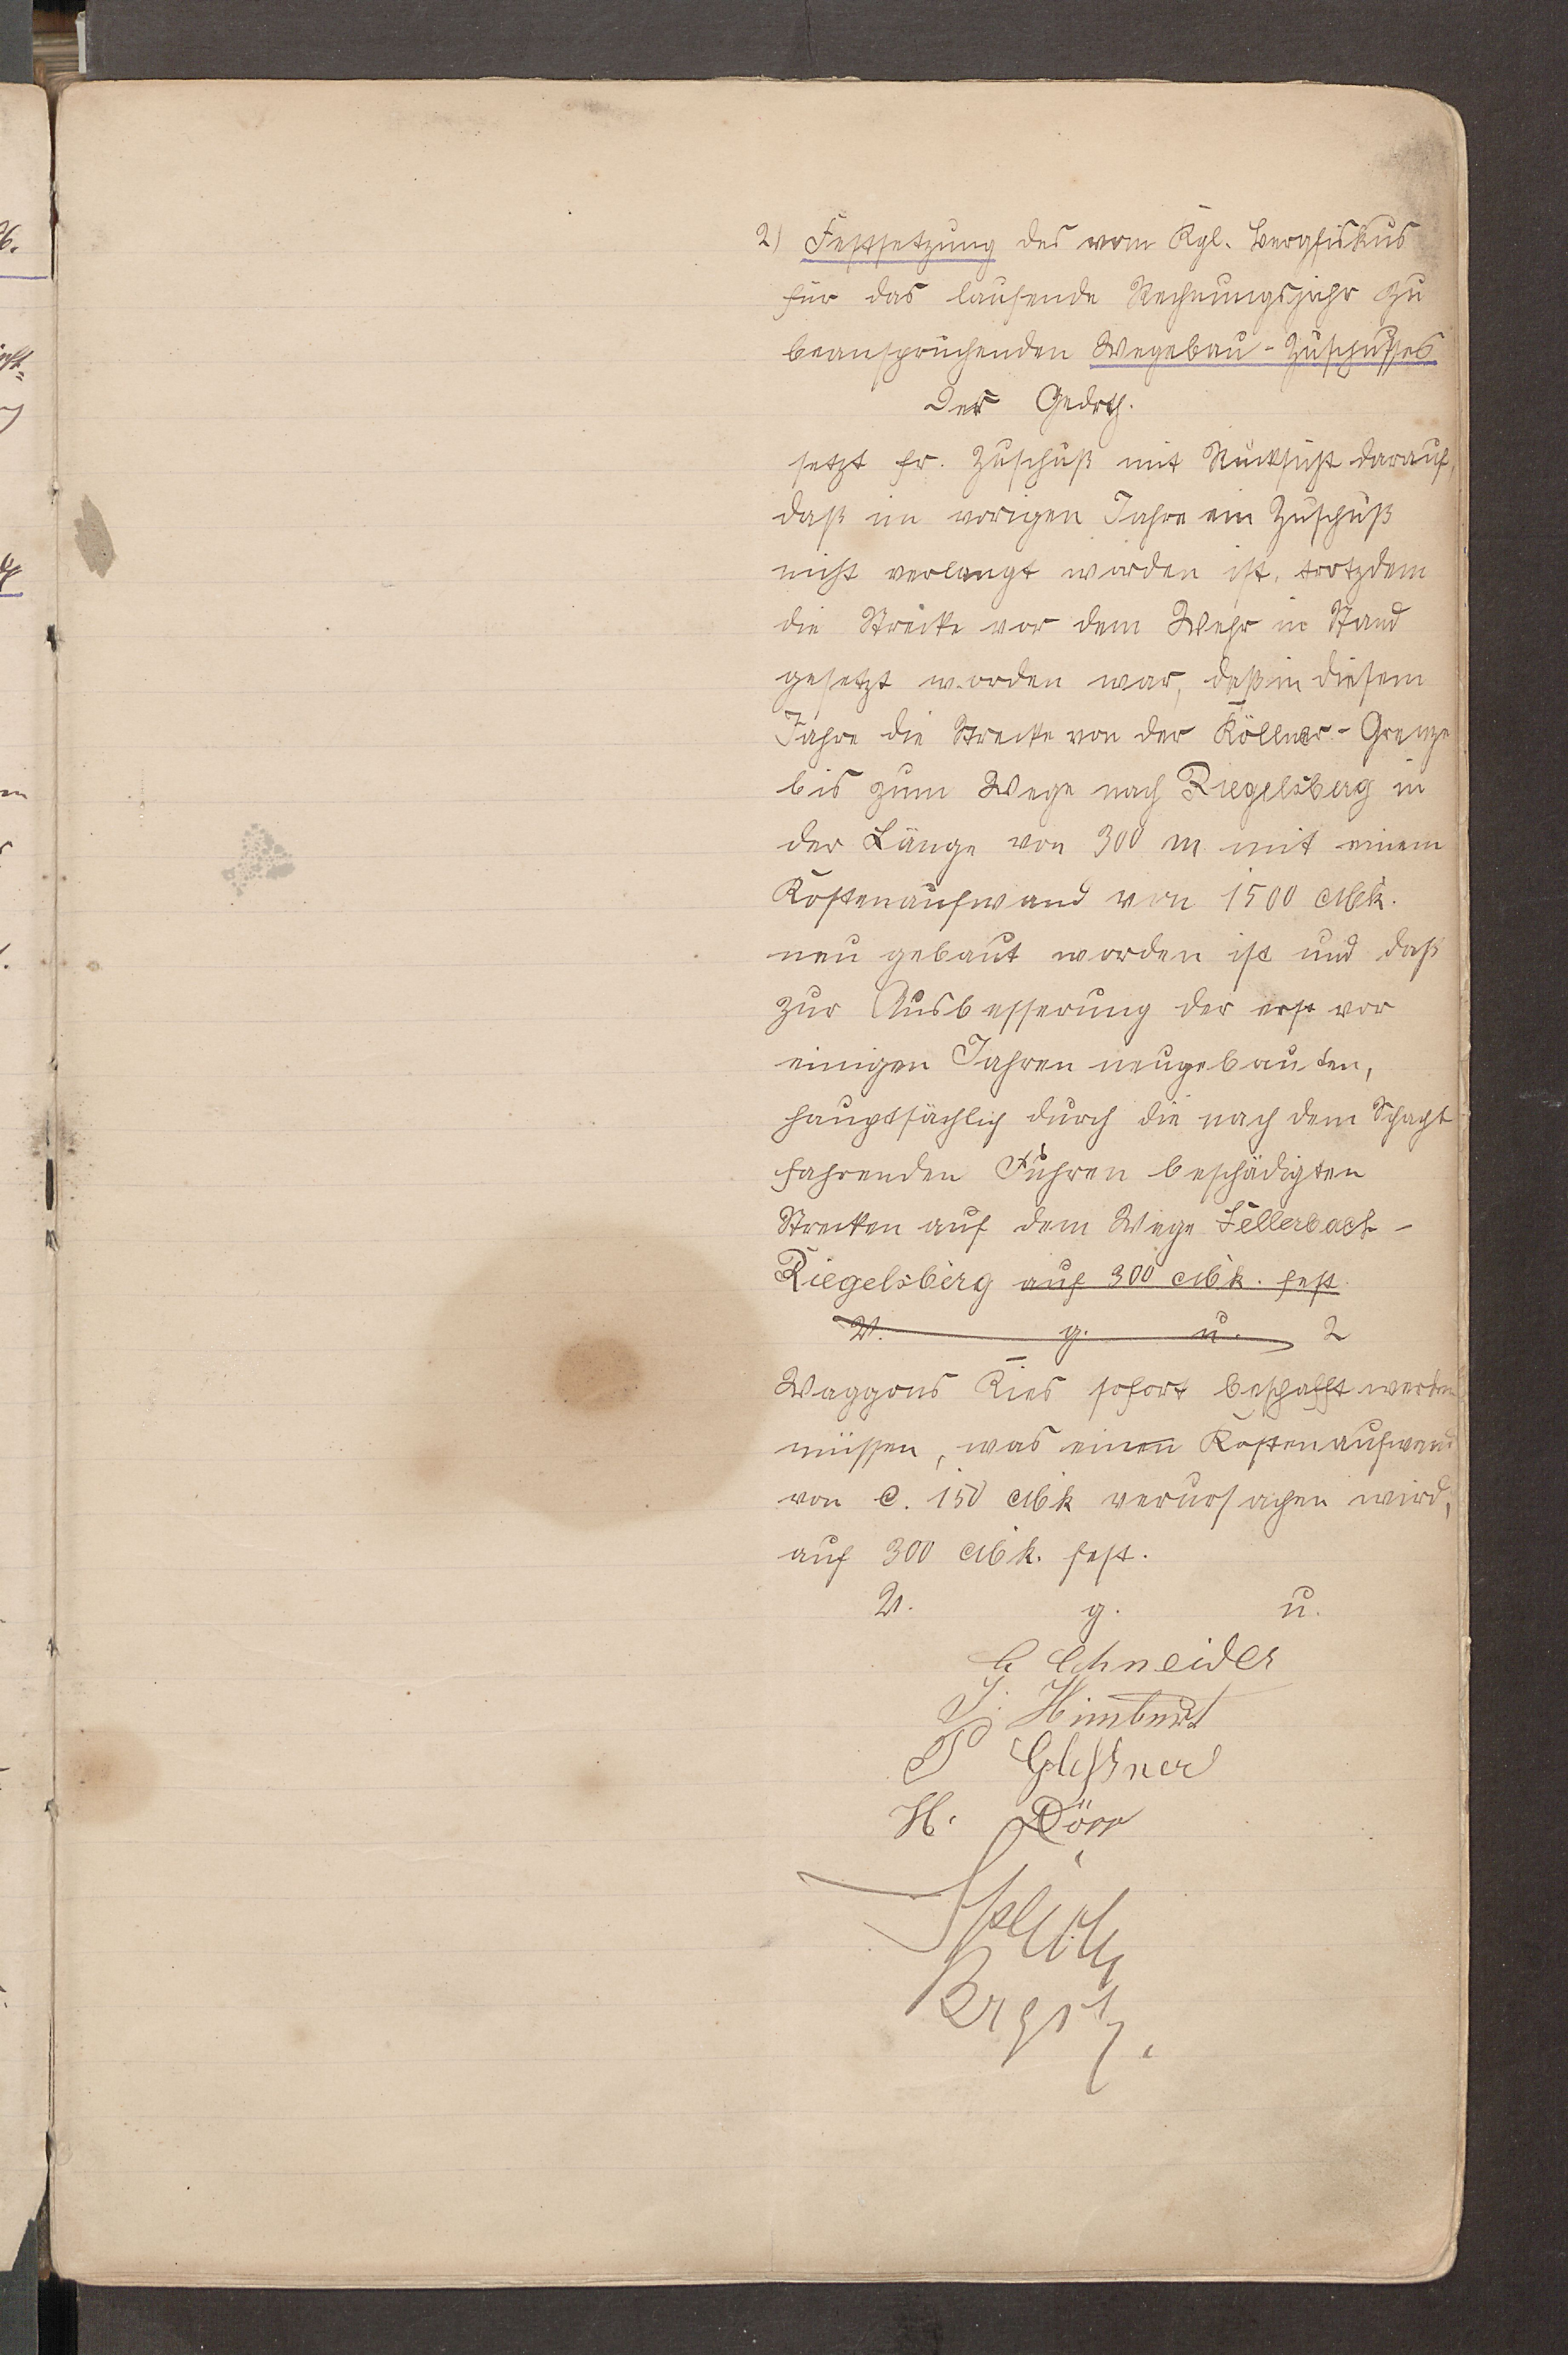 2) Festsetzung des vom Kgl. Bergfiskus
für das laufende Rechnungsjahr zu
beanspruchenden Wegebau-Zuschusses
Der Gedrth.
setzt fr. Zuschuß mit Rücksicht darauf,
daß im vorigen Jahre ein Zuschuß
nicht verlangt worden ist, trotzdem
die Strecke vor dem Wehr in Stand
gesetzt worden war, daß in diesem
Jahre die Strecke von der Köllner-Grenze
bis zum Wege nach Riegelsberg in
der Länge von 300 m mit einem
Kostenaufwand von 1500 Mk.
neu gebaut worden ist und daß
zur Ausbesserung der erst vor
einigen Jahren neugebauten,
hauptsächlich durch die nach dem Schacht
fahrenden Fuhren beschädigten
Strecken auf dem Wege Sellerbach-
Riegelsberg auf 300 Mk. fest.
V. g. u. 2
Waggons Kies sofort beschafft werden
müssen, was einen Kostenaufwand
von c. 150 Mk verursachen wird,
auf 300 Mk. fest.
V. g. u.
Schneider
J. Himbert
P Gleßner
H. Dörr